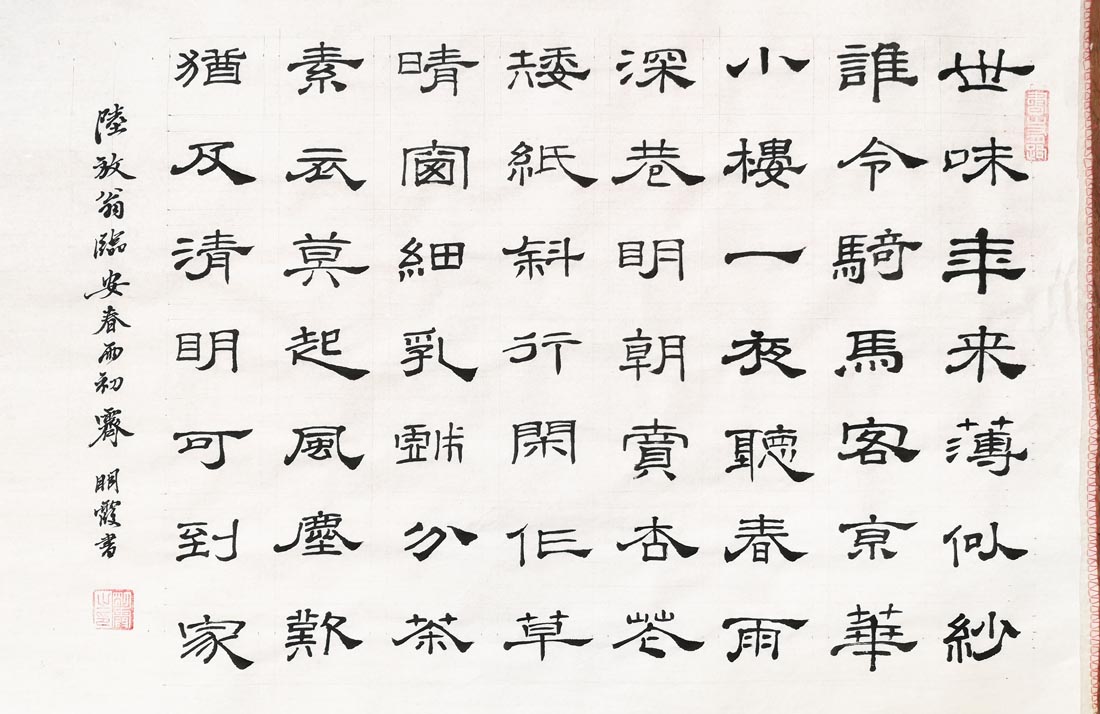 世味年来薄似紗
誰令騎馬客京華
小樓一夜聽春雨
深巷明朝賣杏花
矮紙斜行閑作草
晴窗細乳戲分茶
素衣莫起風塵歎
猶及清明可到家
陸放翁臨安春雨初霽 明霞書